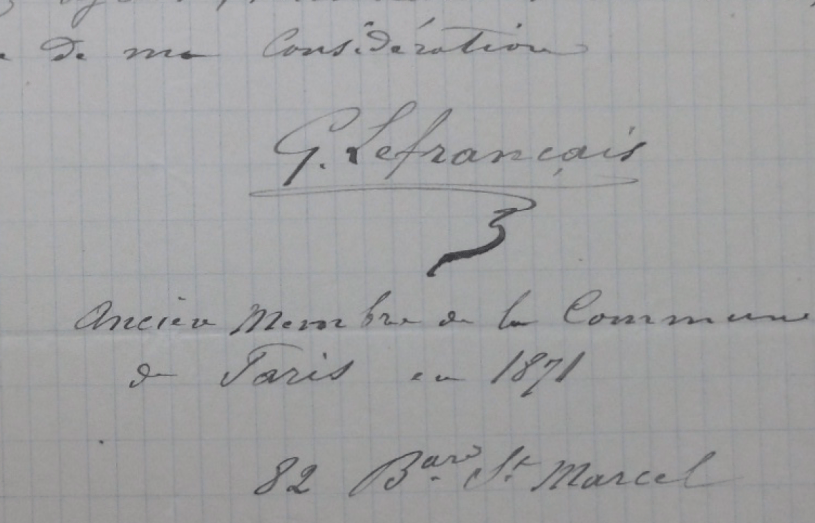 de ma Considération
G. Lefrançais
Ancien Membre de la Commune
de Paris en 1871
82 Bard St. Marcel